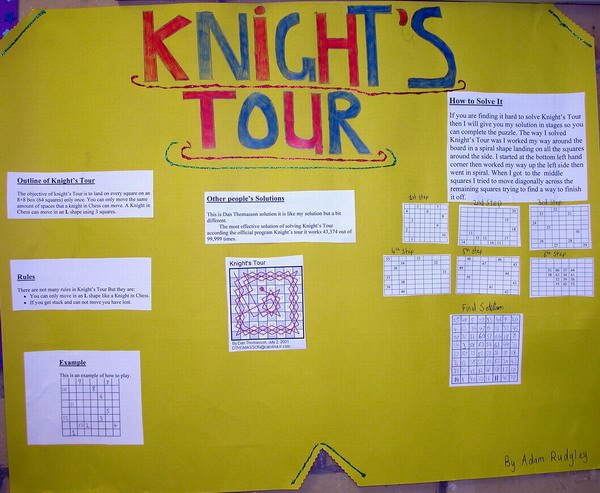 KNiGHT'S
TOUR
How to Solve It
If you are finding it hard to solve Knight's Tour
then I will give you my solution in stages so you
can complete the puzzle. The way I solved
Knight's Tour was I worked my way around the
board in a spiral shape landing on all the squares
around the side. I started at the bottom left hand
corner then worked my way up the left side then
went in spiral. When I got to the middle
squares I tried to move diagonally across the
remaining squares trying to find a way to finish
it off.
Outline of Knight's Tour
The objective of knight's Tour is to land on every square on an
8×8 Box (64 squares) only once. You can only move the same
amount of spaces that a knight in Chess can move. A Knight in
Chess can move in an L shape using 3 squares.
Other people's Solutions
This is Dan Thomasson solution it is like my solution but a bit
different.
The most effective solution of solving Knight's Tour
according the official program Knight's tour it works 43,374 out of
99,999 times.
Rules
There are not many rules in Knight's Tour But they are:
• You can only move in an L shape like a Knight in Chess.
• If you get stuck and can not move you have lost.
Knight's Tour
By Dan Thomasson, July 2, 2001
DTHOMASSON@carolina.rr.com
Example
This is an example of how to play.
1st Step
2nd Step
3rd Step
4th Step
5th step
6th step
Final Solution
By Adam Rudgley